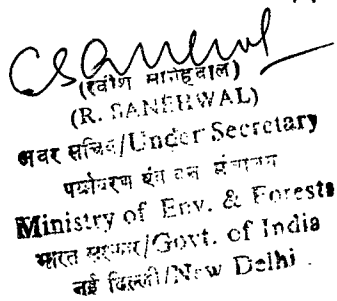 (R. SANEHWAL)
अवर सचिव/Under Secretary
पर्यावरण एंव वन मंत्रालय
Ministry of Env. & Forests
भारत सरकार/Govt. of India
नई दिल्ली/New Delhi